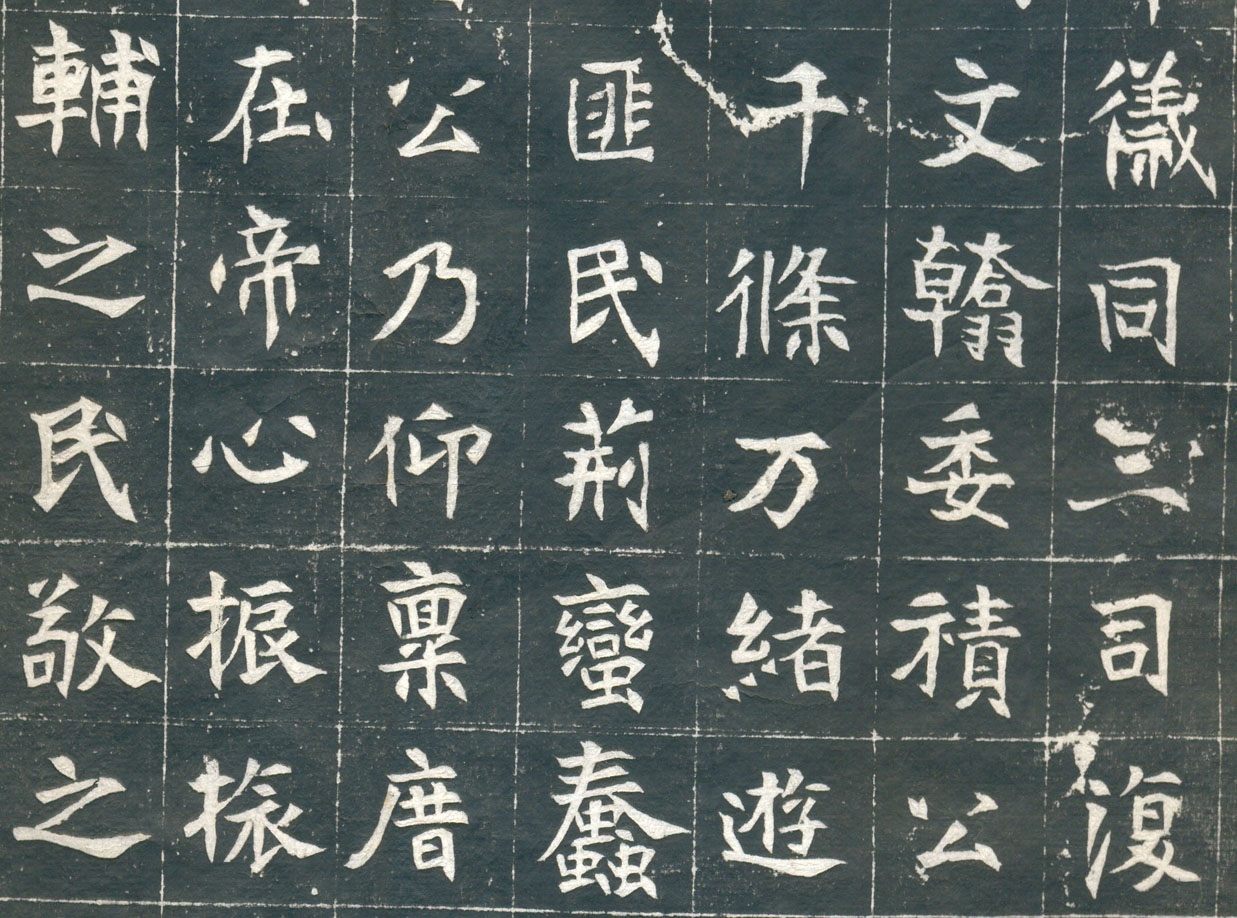 儀同三司復
文翰委積公
千條万緒遊
匪民荊蠻蠢
公乃仰稟
在帝心振振
輔之民敬之